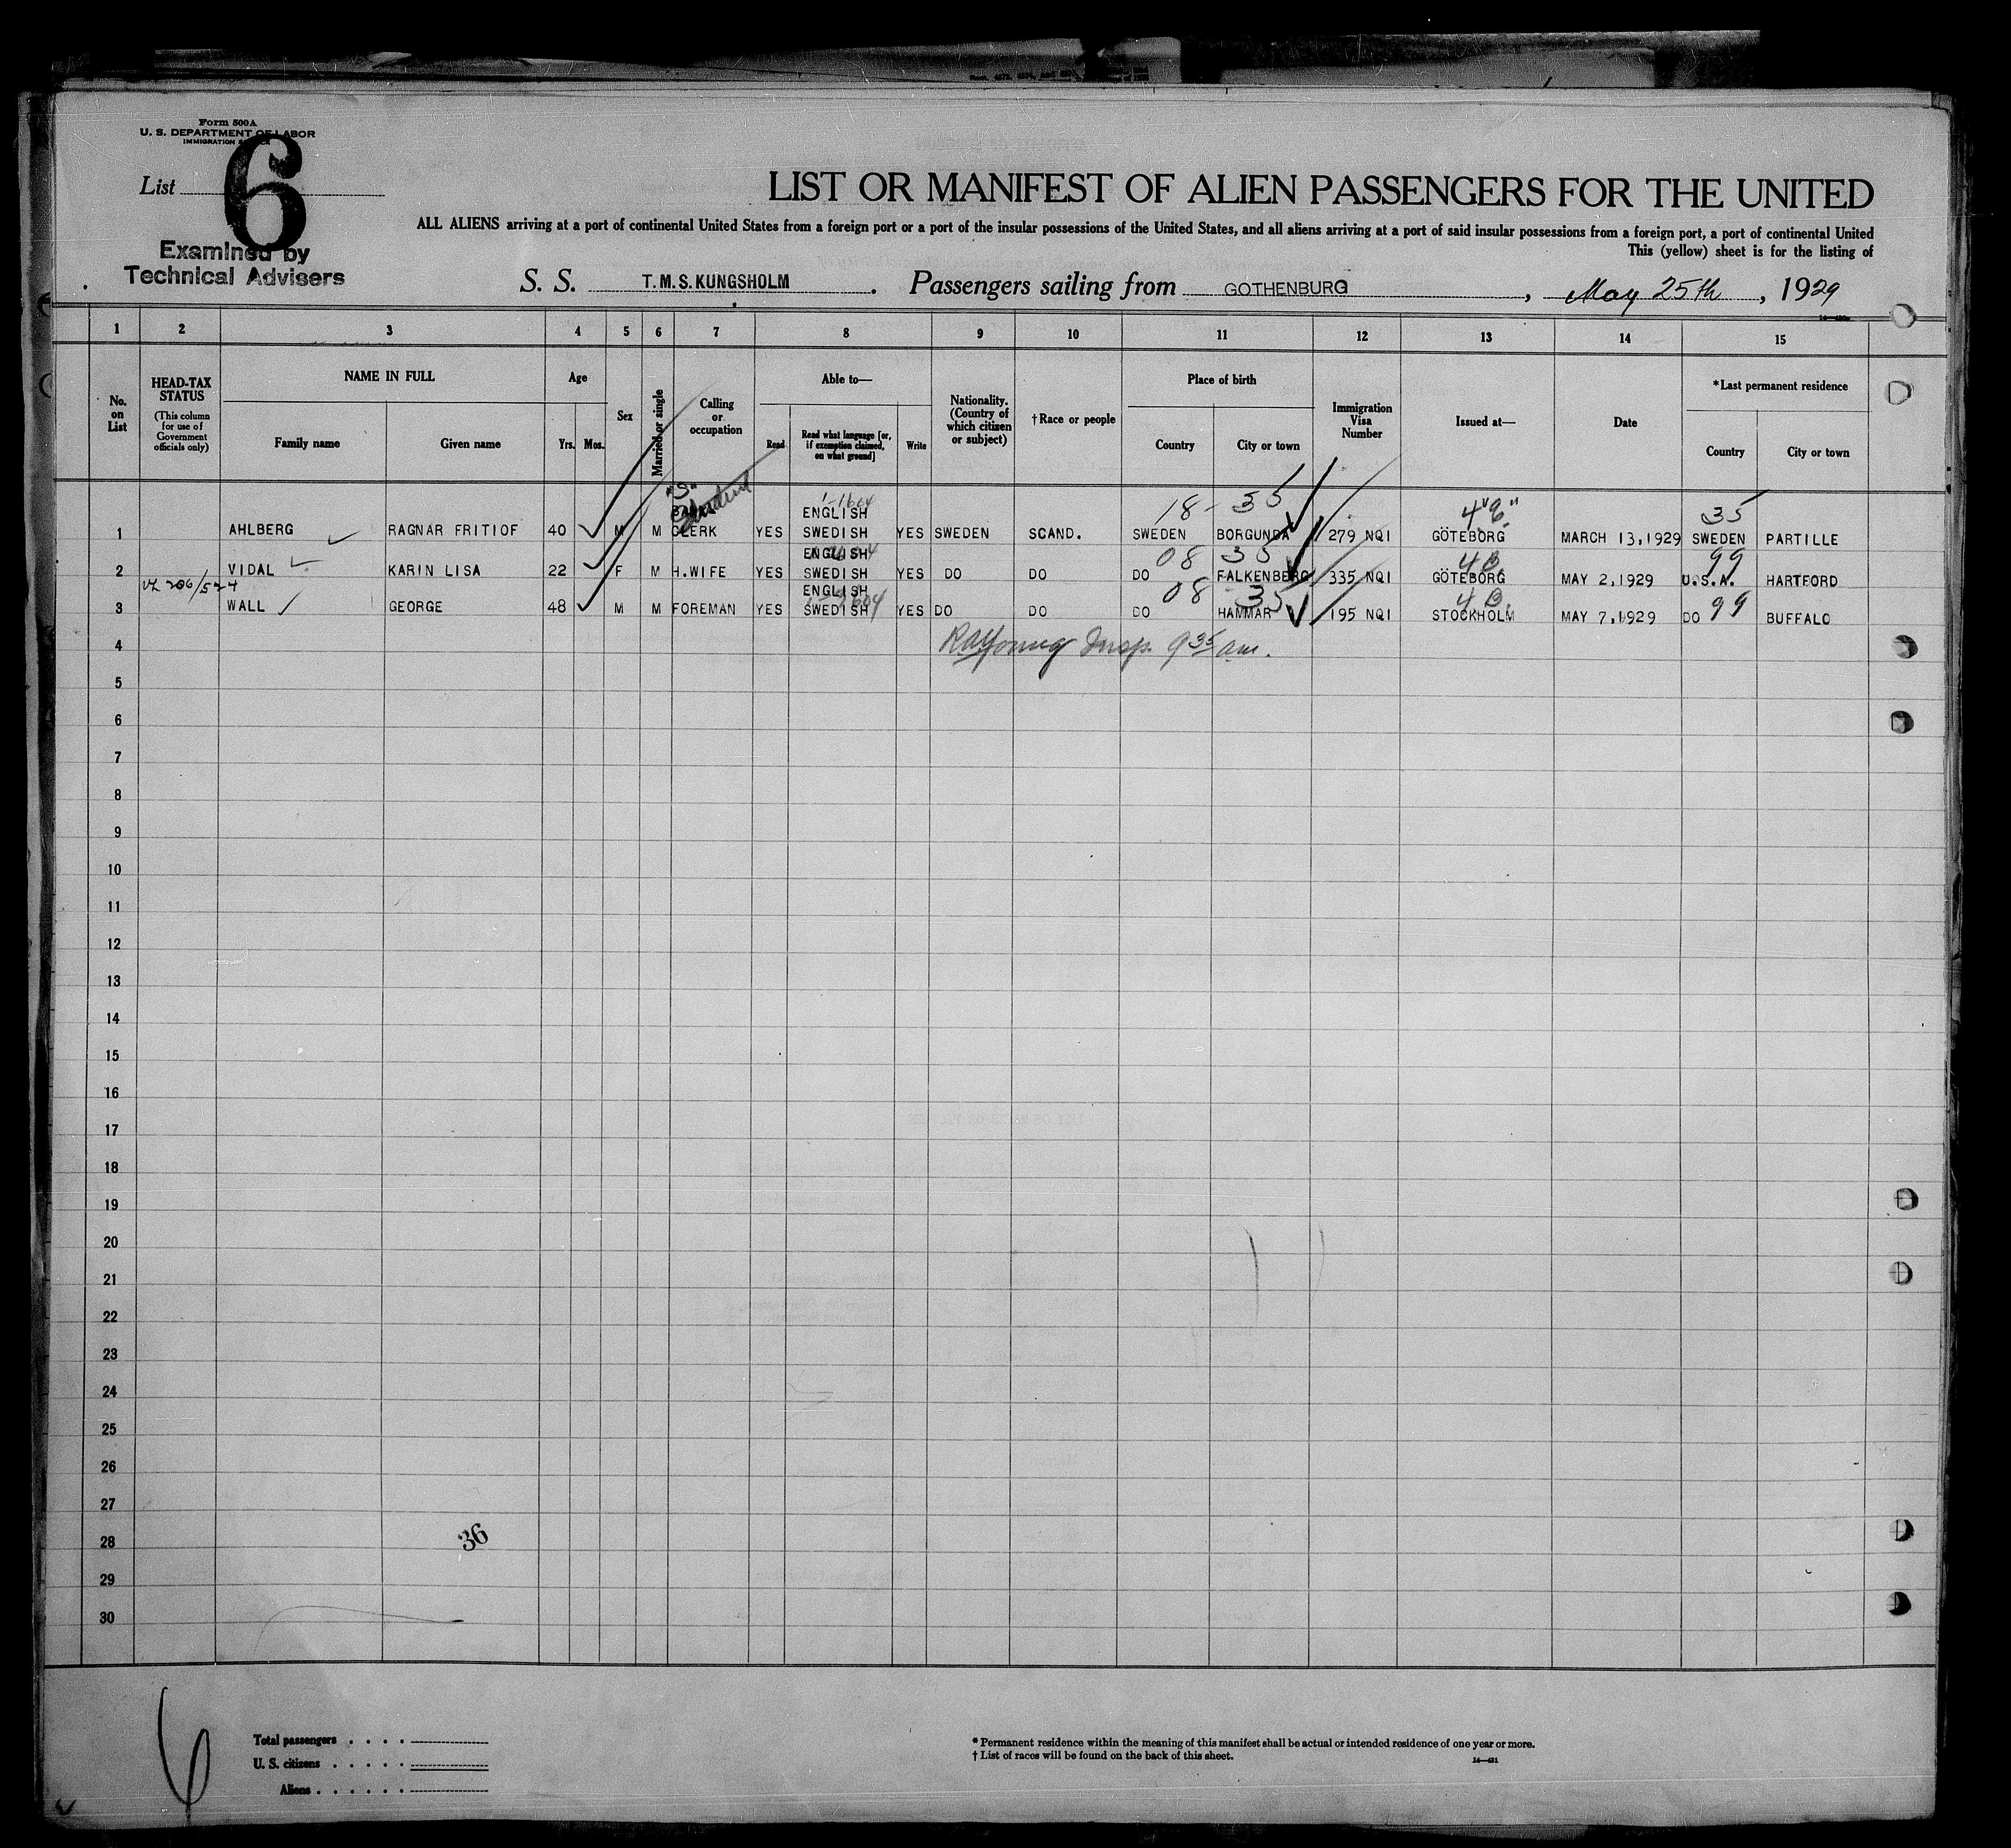 Form 500A
U. S. DEPARTMENT OF LABOR
IMMIGRATION
List 6
Examined by
Technical Advisers
LIST OR MANIFEST OF ALIEN PASSENGERS FOR THE UNITED
ALL ALIENS arriving at a port of continental United States from a foreign port or a port of the insular possessions of the United States, and all aliens arriving at a port of said insular possessions from a foreign port, a port of continental United
This (yellow) sheet is for the listing of
S. S. T.M.S. KUNGSHOLM . Passengers sailing from GOTHENBURG , May 25th , 1929
1 2 3 4 5 6 7 8 9 10 11 12 13 14 15
No. on List
HEAD-TAX STATUS
(This column for use of Government officials only)
NAME IN FULL
Family name Given name
Age
Yrs. Mos.
Sex
Married or single
Calling or occupation
Able to—
Read Read what language [or, if exemption claimed, on what ground] Write
Nationality. (Country of which citizen or subject)
†Race or people
Place of birth
Country City or town
Immigration Visa Number
Issued at—
Date
*Last permanent residence
Country City or town
"S" Student 18 - 35 4 35
1 AHLBERG RAGNAR FRITIOF 40 M M CLERK YES ENGLISH SWEDISH YES SWEDEN SCAND. SWEDEN BORGUNDA 279 NQI GÖTEBORG MARCH 13,1929 SWEDEN PARTILLE
08 35 4B. 99
2 VIDAL KARIN LISA 22 F M H.WIFE YES ENGLISH SWEDISH YES DO DO DO FALKENBERG 335 NQI GÖTEBORG MAY 2,1929 U.S.A. HARTFORD
08 35 4B. 99
3 WALL GEORGE 48 M M FOREMAN YES ENGLISH SWEDISH YES DO DO DO HAMMAR 195 NQI STOCKHOLM MAY 7,1929 DO BUFFALO
4 Insp. 9 35 am.
5
6
7
8
9
10
11
12
13
14
15
16
17
18
19
20
21
22
23
24
25
26
27
28 36
29
30
6
Total passengers . . . .
U. S. citizens . . . . .
Aliens . . . . . .
* Permanent residence within the meaning of this manifest shall be actual or intended residence of one year or more.
† List of races will be found on the back of this sheet.
14—431